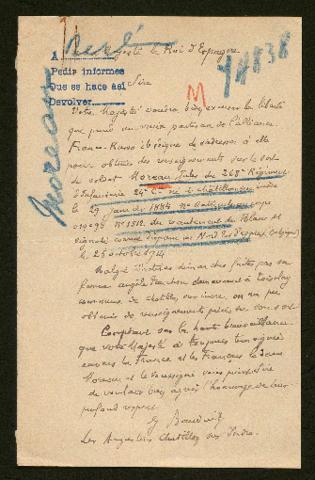 A
Pedir informes
Que se hace así
Devolver
Moreau
M
Majesté le Roi d'Espagne
Sire
Votre Majesté voudra bien excuser la liberté
que prend un vieux partisan de l'alliance
Franco-Russe de s'adresser à elle
pour obtenir des renseignements sur le sort
du soldat Moreau Jules du 268e Régiment
d'Infanterie 24e Cie né à Châtillon sur Indre
le 29 1884 No matricule au corps
No 1518, du recrutement du Blanc et
signalé comme disparu au Nord d'Ypres (Belgique)
le 25 octobre 1914
Malgré diverses démarches faites par sa
femme Angèle demeurant à
commune de Châtillon sur Indre, on n'a pu
obtenir de renseignements précis sur son sort
Comptant sur la haute bienveillance
que votre Majesté a toujours témoignée
envers la France et les Français la Dame
Moreau et le soussigné vous prient Sire
de vouloir bien agréer l'hommage de leur
profond respect
G
Les Augustins Châtillon sur Indre